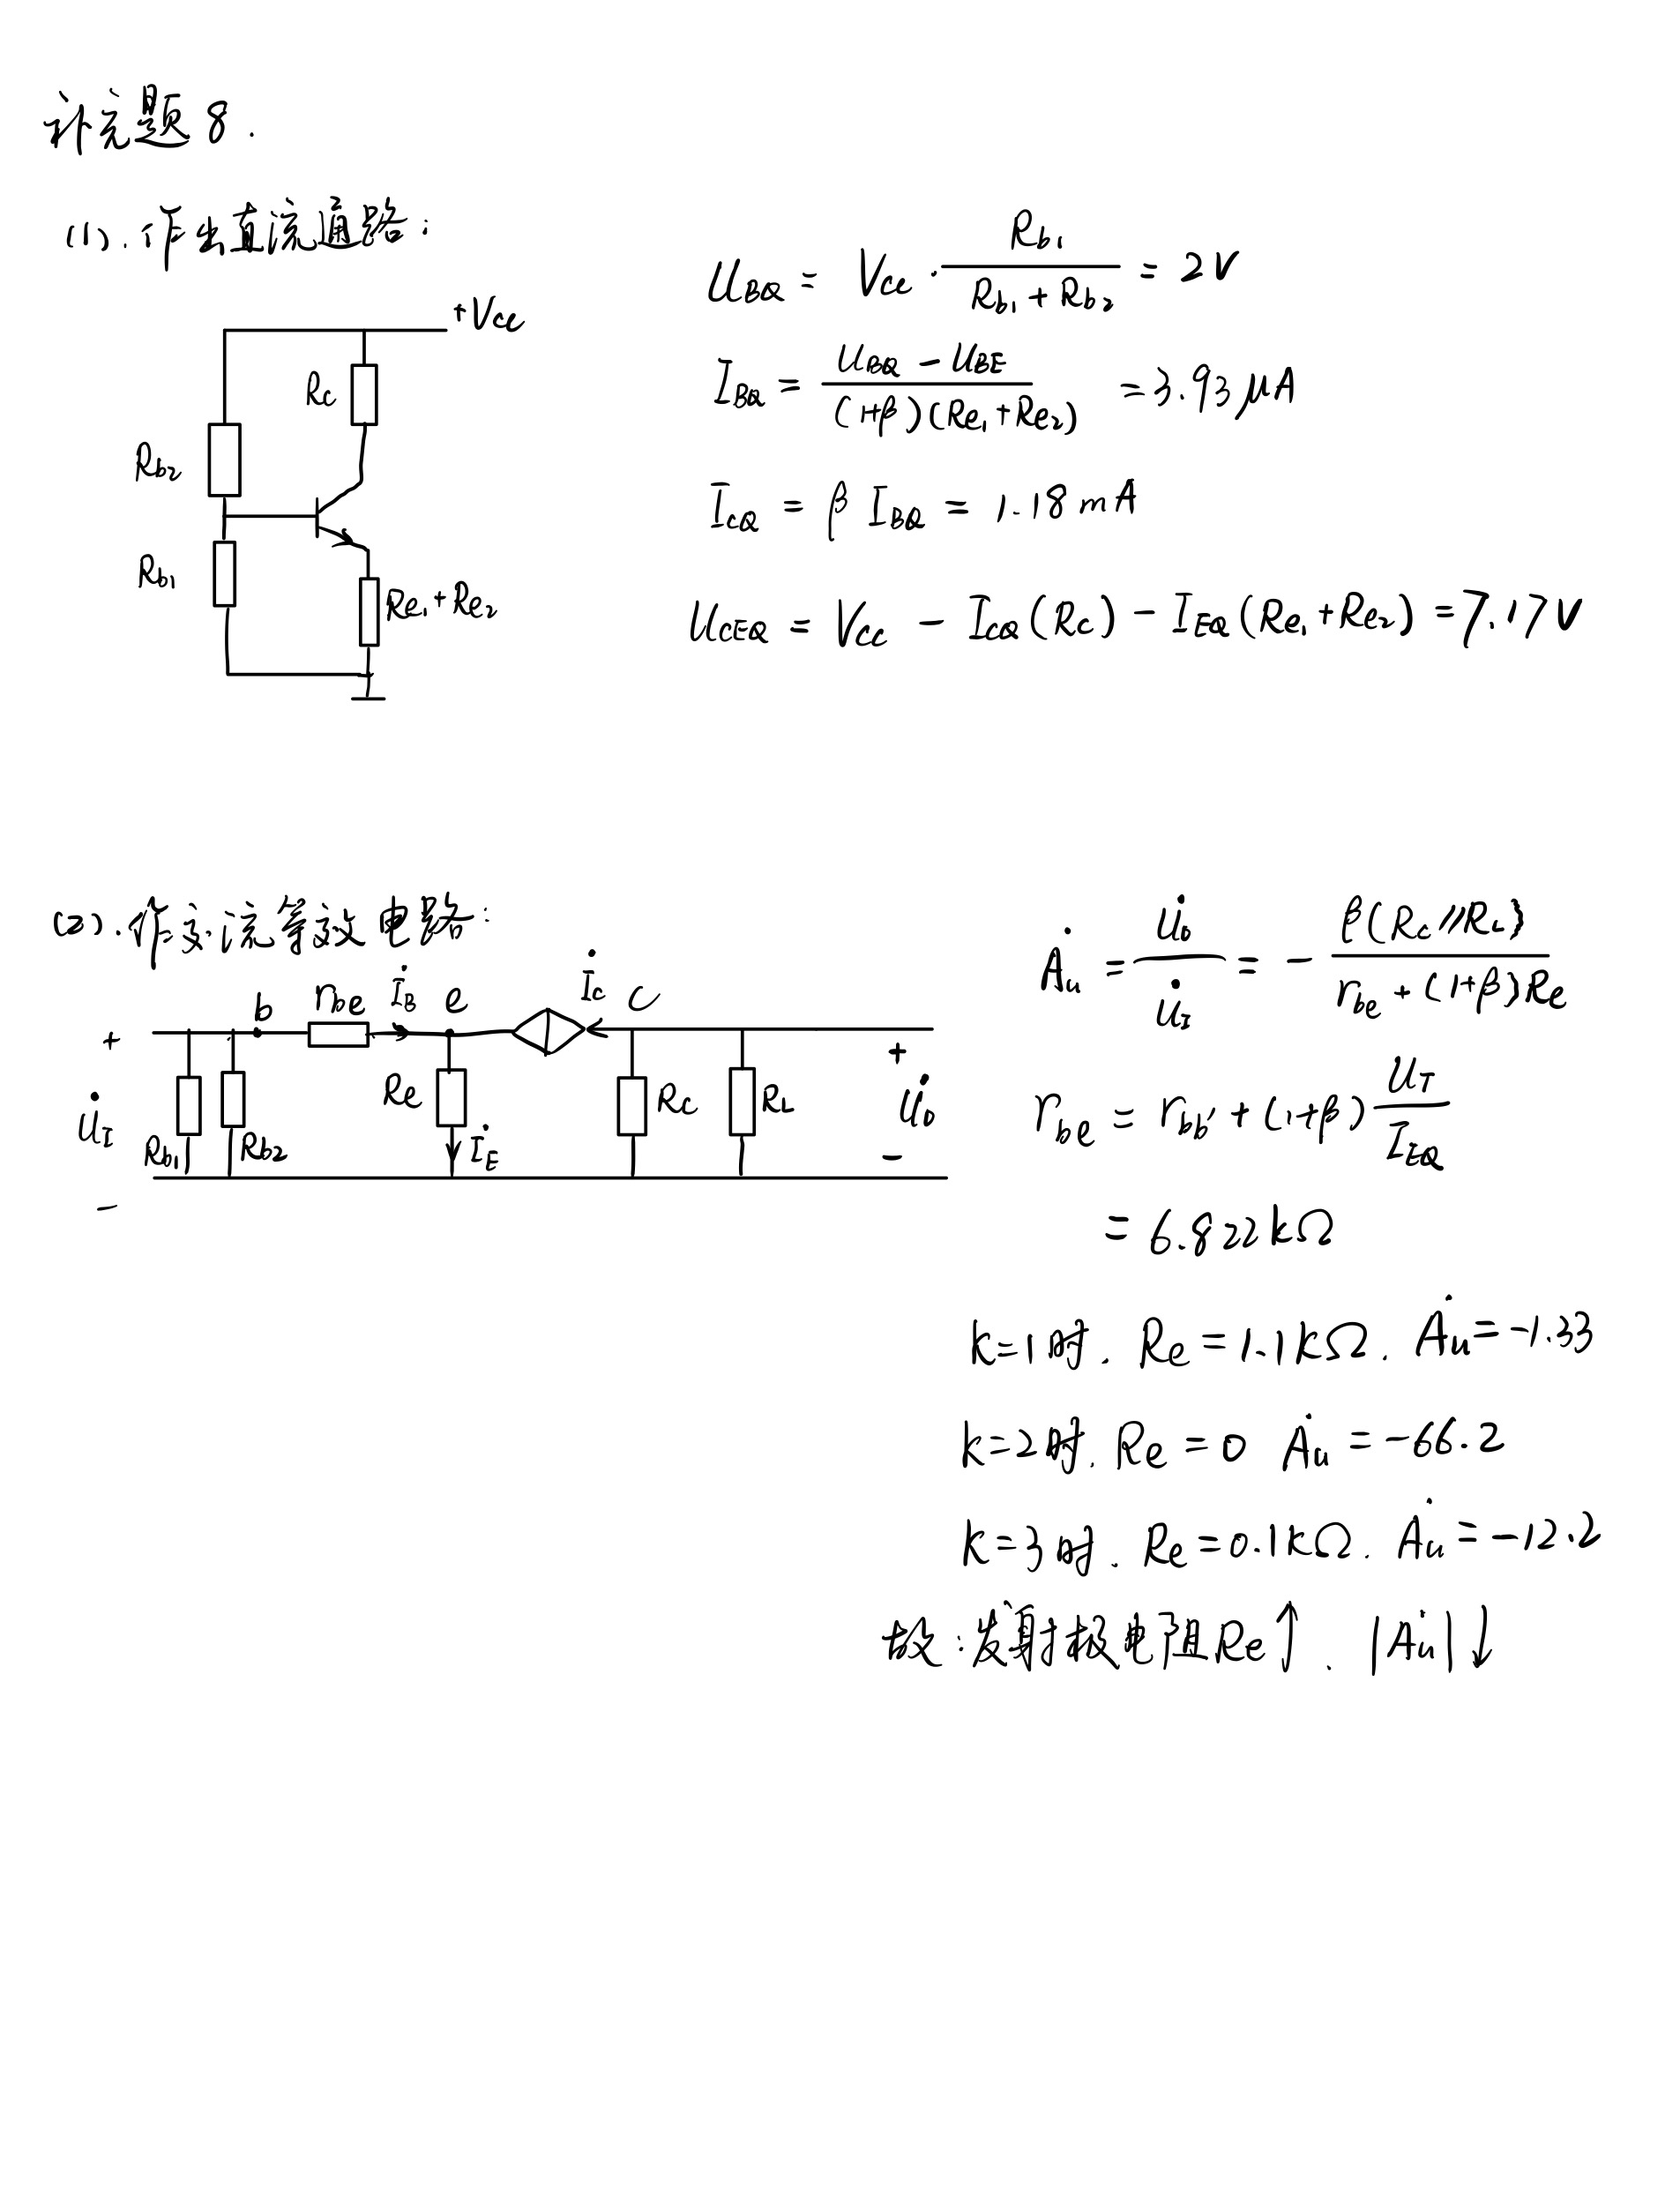 补充题8.
(1).作出直流通路:
+Vcc
Rc
Rb2
Rb1
Re1+Re2
UBQ = Vcc · Rb1 / (Rb1 + Rb2) = 2V
IBQ = (UBQ - UBE) / ((1+β)(Re1+Re2)) = 3.93 μA
IcQ = β IBQ = 1.18 mA
UCEQ = Vcc - ICQ(Rc) - IEQ(Re1+Re2) = 7.17V
(2).作交流等效电路:
b rbe İB e İc c
+ U̇I -
Rb1 Rb2 Re İE Rc RL
+ U̇o -
Ȧu = U̇o / U̇I = - β(Rc//RL) / (rbe + (1+β)Re)
rbe = rbb' + (1+β) UT / IEQ
= 6.822kΩ
k=1时. Re = 1.1kΩ. Ȧu = -1.33
k=2时. Re = 0 Ȧu = -66.2
k=3时. Re = 0.1kΩ. Ȧu = -12.2
故:发射极电阻Re↑. |Ȧu|↓